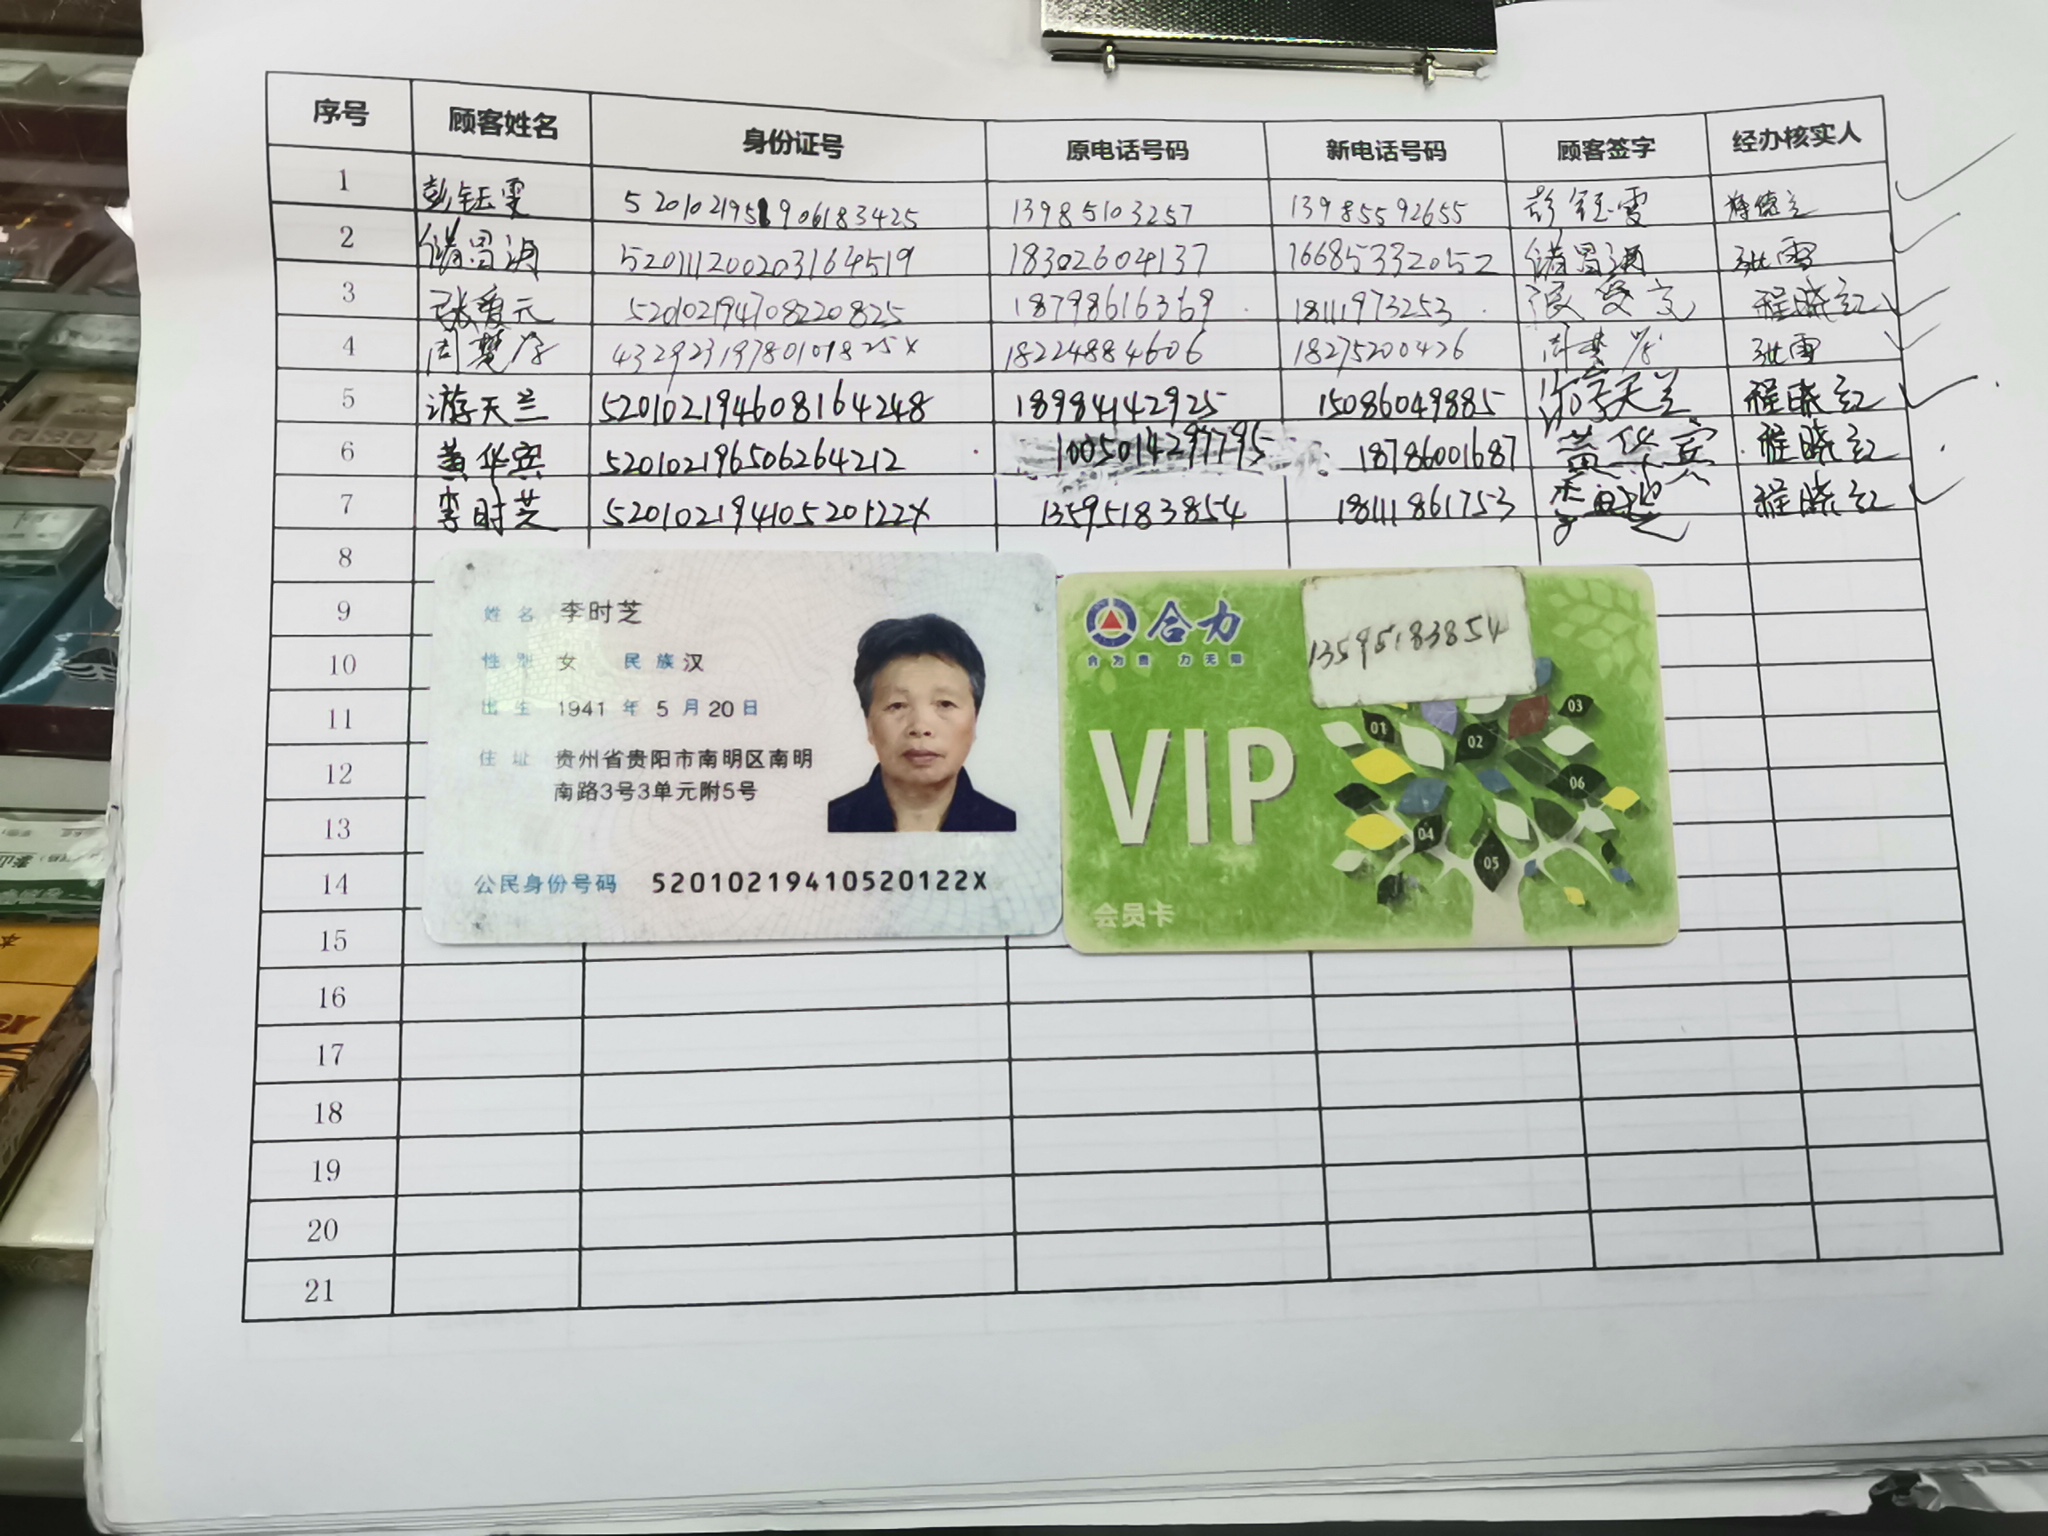 序号 顾客姓名 身份证号 原电话号码 新电话号码 顾客签字 经办核实人
1 彭钰雯 13985103257 13985592655 彭钰雯
2 520111200203164519 18302604137 16685332052 张雪
3 张爱元 520102194708220825 18798616369 18111973253 张爱元 程晓红
4 43292319780101825X 18224884606 18275200426 张雪
5 游天兰 520102194608164248 18984142925 15086049885 游天兰 程晓红
6 黄华宾 520102196506264212 1005014297795 18786001687 黄华宾 程晓红
7 李时芝 52010219410520122X 13595183854 18111861753 程晓红
8
9
10
11
12
13
14
15
16
17
18
19
20
21
姓名 李时芝
性别 女 民族 汉
出生 1941 年 5 月 20 日
住址 贵州省贵阳市南明区南明
南路3号3单元附5号
公民身份号码 52010219410520122X
合力
合为贵 力无限
13595183854
VIP
01
02
03
04
05
06
会员卡